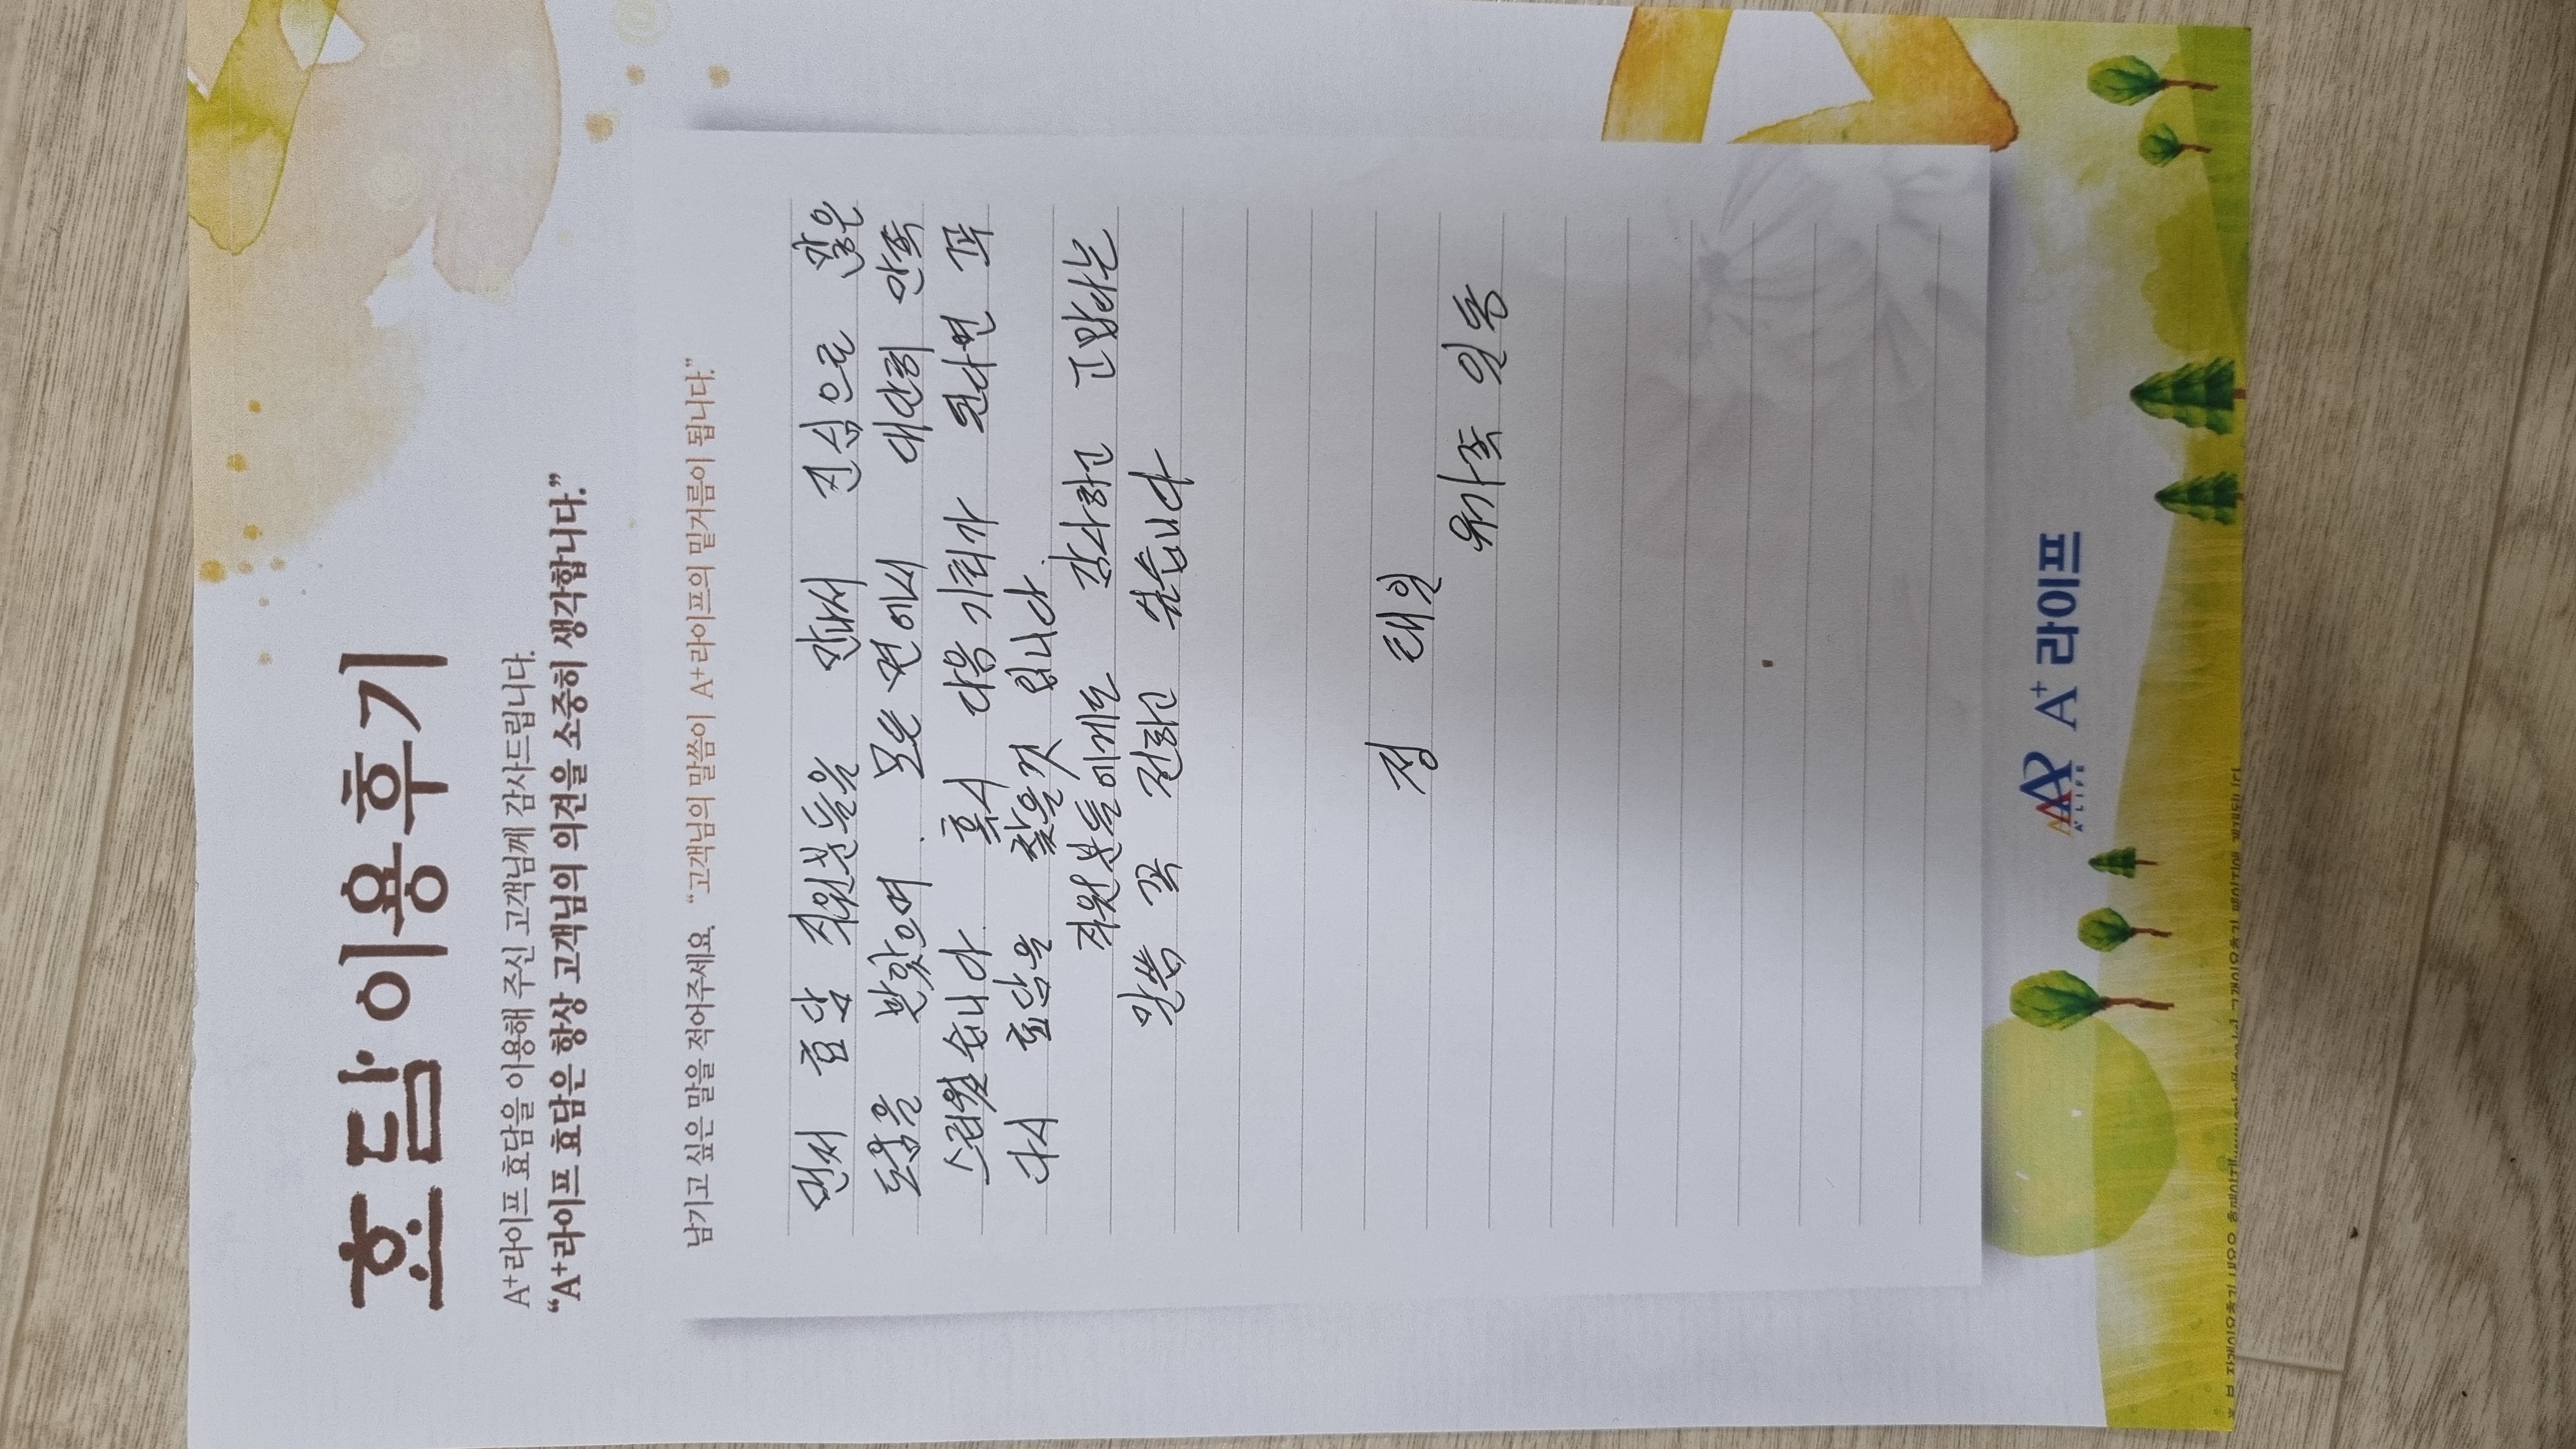 효담 이용후기
A⁺라이프 효담을 이용해 주신 고객님께 감사드립니다.
“A⁺라이프 효담은 항상 고객님의 의견을 소중히 생각합니다.”
남기고 싶은 말을 적어주세요. “고객님의 말씀이 A⁺라이프의 밑거름이 됩니다.”
먼저 효담 직원분들을 만나서 진심으로 많은
도움을 받았으며. 모든면에서 대단히 만족
스러웠습니다. 혹시 다음 기회가 된다면 꼭
다시 효담을 찾을것 입니다.
직원분들에게도 감사하고 고맙다는
말씀 꼭 전하고 싶습니다
정 태일
유가족 일동
A⁺ LIFE A⁺ 라이프